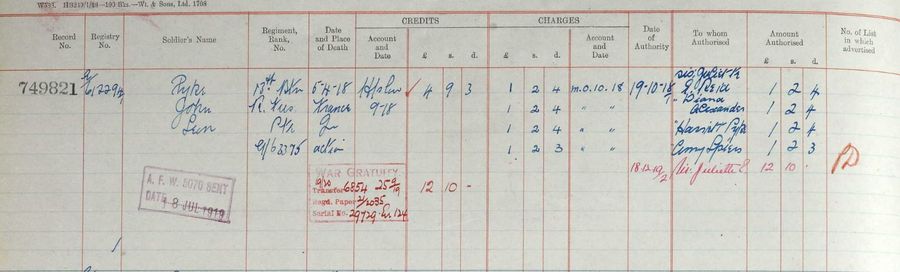 W5381. 11829/1/18—100 Bks.—Wt. & Sons, Ltd. 1708
Record No.
Registry No.
Soldier's Name
Regiment, Rank, No.
Date and Place of Death
CREDITS
Account and Date
£ s. d.
CHARGES
£ s. d.
Account and Date
Date of Authority
To whom Authorised
Amount Authorised
£ s. d.
No. of List in which advertised
749821 Pyke 13th 5-4-18 4 9 3 1 2 4 m.o. 10.18 19-10-18 sis. Juliette E. 1 2 4
John R. Fus. France 9-18 1 2 4 " " " Diana Alexander 1 2 4
Pte In 1 2 4 " " " Harriett Pyke 1 2 4
G/62375 action 1 2 3 " " Amy Spiers 1 2 3
WAR GRATUITY
Transfer 6854 25 9/19 12 10 - 18.12.19 Sis. Juliette E. 12 10
Regd. Paper 2/2035
Serial No. 29729
A. F. W. 5070 SENT
DATE 18 JUL 1919